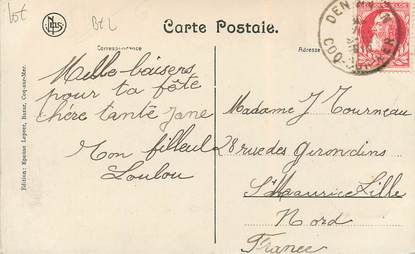 lot
Bel
Carte Postale.
Correspondance
Adresse
DEN
COQ
Mille baisers
pour ta fête
chère tante Jane
Ton filleul
Loulou
Madame J Tourneau
28 rue des Girondins
St Maurice Lille
Nord
France
Edition: Epouse Legein, Bazar, Coq-sur-Mer.